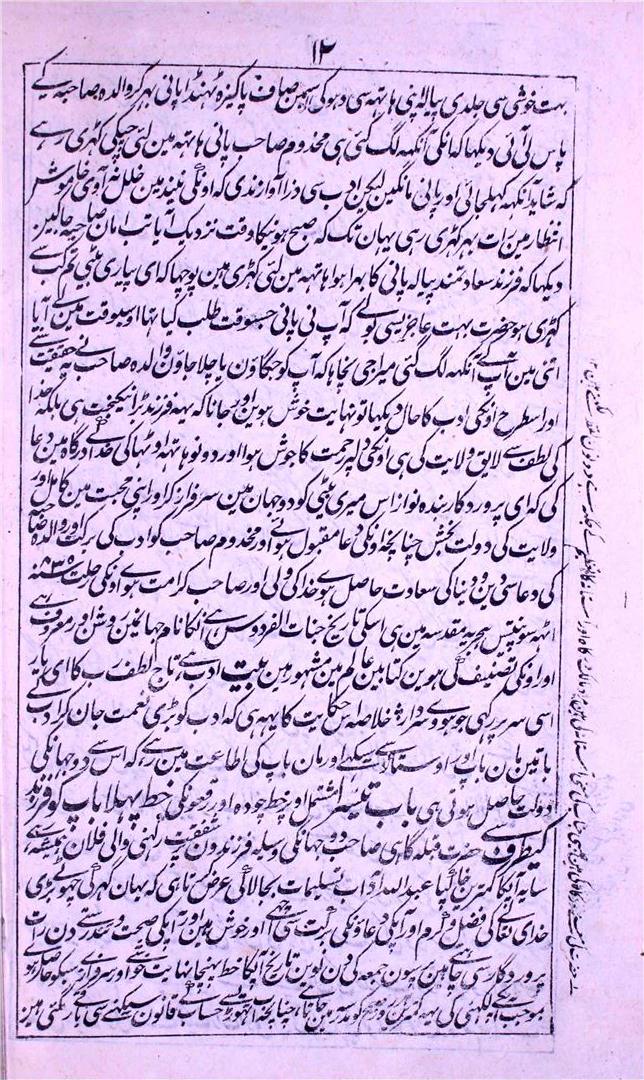 ۱۲
بہت خوشی سی جلدی پیالہ پنی ہاتہہ سی دہوکی اسمین صاف پاکیزہ ٹہنڈا پانی بہر کر والدہ صاحبہ کے
پاس لی آئی دیکہا کہ انکی آنکہہ لگ گئی ہی مخدوم صاحب پانی ہاتہہ مین لئی چپکی کہڑی رہے
کہ شاید آنکہہ کہلجائی اور پانی مانگین لیکن ادب سی ذرا آواز ندی کہ اونکی نیند مین خلل نہ آوی خاموش
انتظار مین رات بہر کہڑی رہی یہان تک کہ صبح ہونیکا وقت نزدیک آیا تب امان صاحبہ جاگین
دیکہا کہ فرزند سعادتمند پیالہ پانی کا بہرا ہوا ہاتہہ مین لئی کہڑی ہین پوچہا کہ ای پیاری بیٹی تم کب سے
کہڑی ہو حضرت بہت عاجزیسی بولے کہ آپ نی پانی جسوقت طلب کیا تہا اوسیوقت مین لے آیا
اتنی مین آپ کی آنکہہ لگ گئی میرا جی نچاہا کہ آپ کو جگاؤن یا چلا جاؤن والدہ صاحب نے یہ حقیقت
اور اسطرح اونکی ادب کا حال دیکہا تو نہایت خوش ہوین اور جانا کہ یہہ فرزند بڑا نیکبخت ہی بلکہ خدا
کی لطف سے لایق ولایت کی ہی انکی دلپر رحمت کا جوش ہوا اور دونو ہاتہہ اوٹہا کی خدا کی درگاہ مین دعا
کی کہ ای پروردگار بندہ نواز اس میری بیٹی کو دو جہان مین سرفراز کر اور اپنی محبت مین کامل اور
ولایت کی دولت بخش چنانچہ اونکی دعا مقبول ہوئی اور مخدوم صاحب کو ادب کی برکت اور والدہ صاحبہ
کی دعا سی دین و دنیا کی سعادت حاصل ہوی خدا کی ولی اور صاحب کرامت ہوے اونکی رحلت ۸۳۵ سنہ
اٹہہ سو پینتیس ہجریہ مقدسہ مین ہی اسکی تاریخ جنات الفردوس ہے انکا نام جہانمین روشن اور معروف ہے
اور اونکی تصنیف کی ہوین کتابین عالم مین مشہور ہین بیت ادب ہے تاج لطف رب کا ای یار
اسی سر پر رکہی جو ہووے سردار خلاصہ اس حکایت کا یہہ ہی کہ ادب کو بڑی نعمت جان کر ادب کے
باتین مان باپ اور اوستاد سے سیکہے اور مان باپ کی اطاعت مین رہے کہ اس سے دو جہانکی
دولت حاصل ہوتی ہی باب تیسرا مشتمل اوپر خط چودہ اور رقعونکی خط پہلا باپ کو فرزند
کیطرف سے حضرت قبلہ گاہی صاحب دو جہانکی وسیلہ فرزندون پر شفقت رکہنی والی فلان ہمیشہ رہے
سایہ آپکا کمترین خاکپا عبداللہ آداب تسلیمات بجالا کی عرض کرتا ہی کہ یہان گہر کی چہوٹے بڑی
خدای تعالی کی فضل و کرم اور آپکی دعاؤنکی برکت سی اچہے اور خوش ہین اور آپکی صحت و تندرستی دن رات
پروردگار سی چاہتی ہین سیون جمعہ کی دن نوین تاریخ آپکا خط پہنچا نہایت خوشی اور سرفرازی سبکو حاصل ہوئی
موجب آپکی لکہنی کی یہہ کمترین ہر روز صبح کو مدرسہ مین جاتا ہی چنانچہ اب تہوڑے حساب کی قانون سیکہنے سی باقی رہگئی ہین